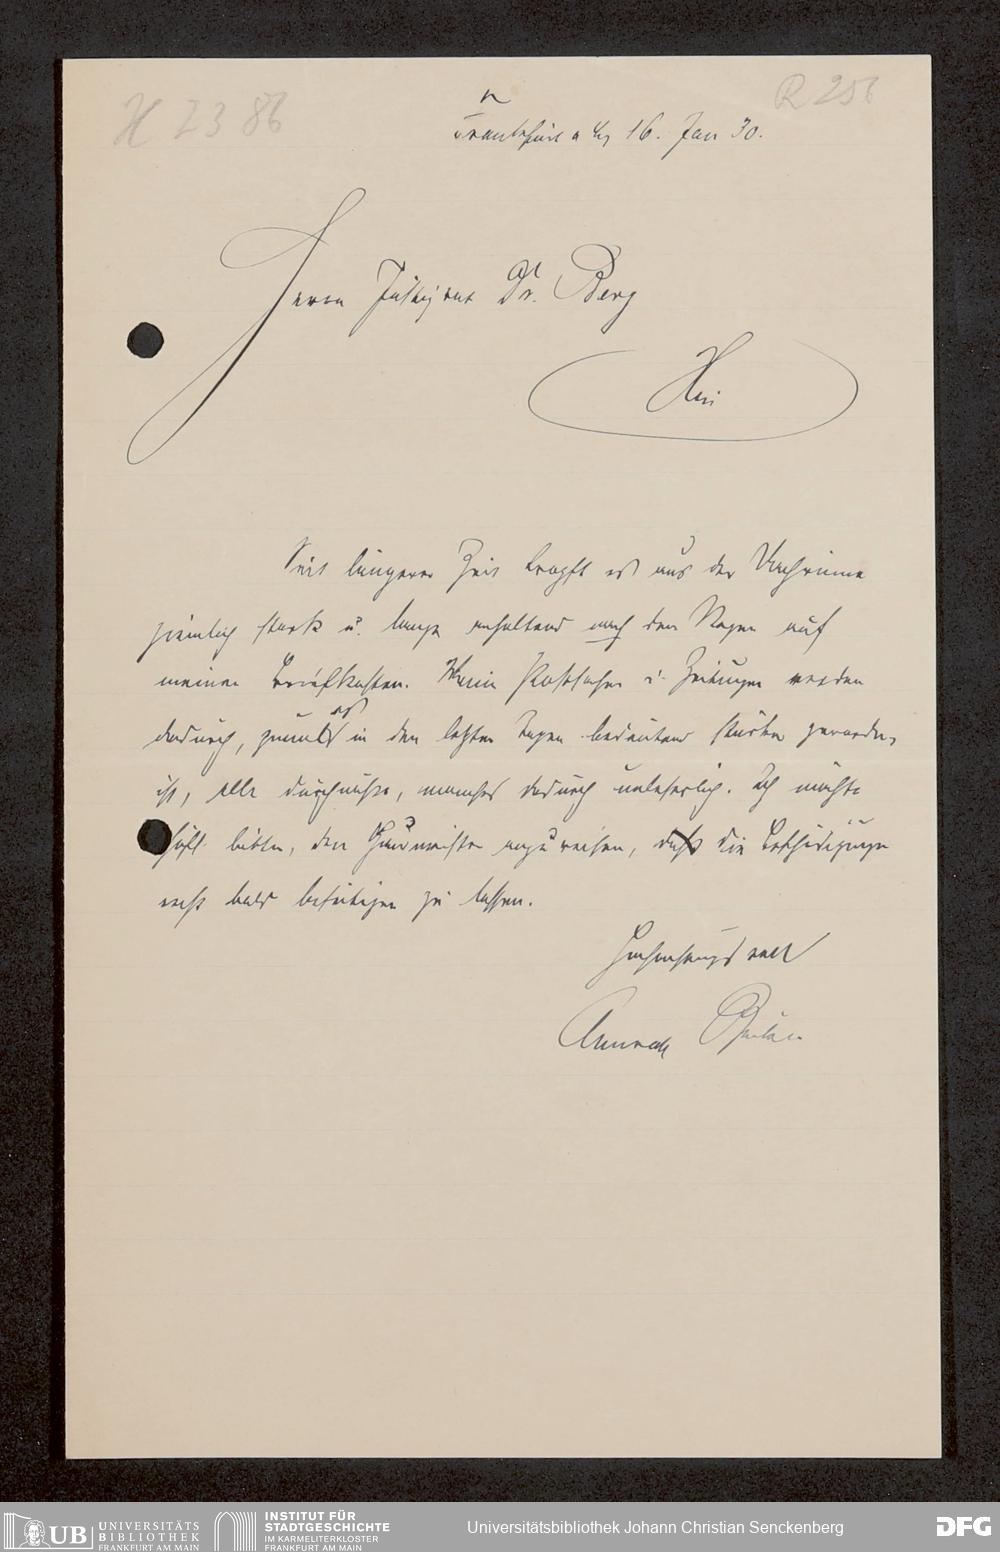 H 2386
R 256
Frankfurt a M 16. Jan 30.
Herrn Justizrat Dr. Berg
Hier
Seit längerer Zeit tropft es aus der Dachrinne
ziemlich stark u. lange anhaltend nach dem Regen auf
meinen Briefkasten. Meine Postsachen u. Zeitungen werden
dadurch, zumal es in den letzten Tagen bedeutend stärker geworden
ist, alle durchnässt, manches dadurch unleserlich. Ich möchte
höfl. bitten, den Hausmeister anzuweisen, die Beschädigungen
recht bald beseitigen zu lassen.
Hochachtungsvoll
UB UNIVERSITÄTS
BIBLIOTHEK
FRANKFURT AM MAIN
INSTITUT FÜR
STADTGESCHICHTE
IM KARMELITERKLOSTER
FRANKFURT AM MAIN
Universitätsbibliothek Johann Christian Senckenberg
DFG